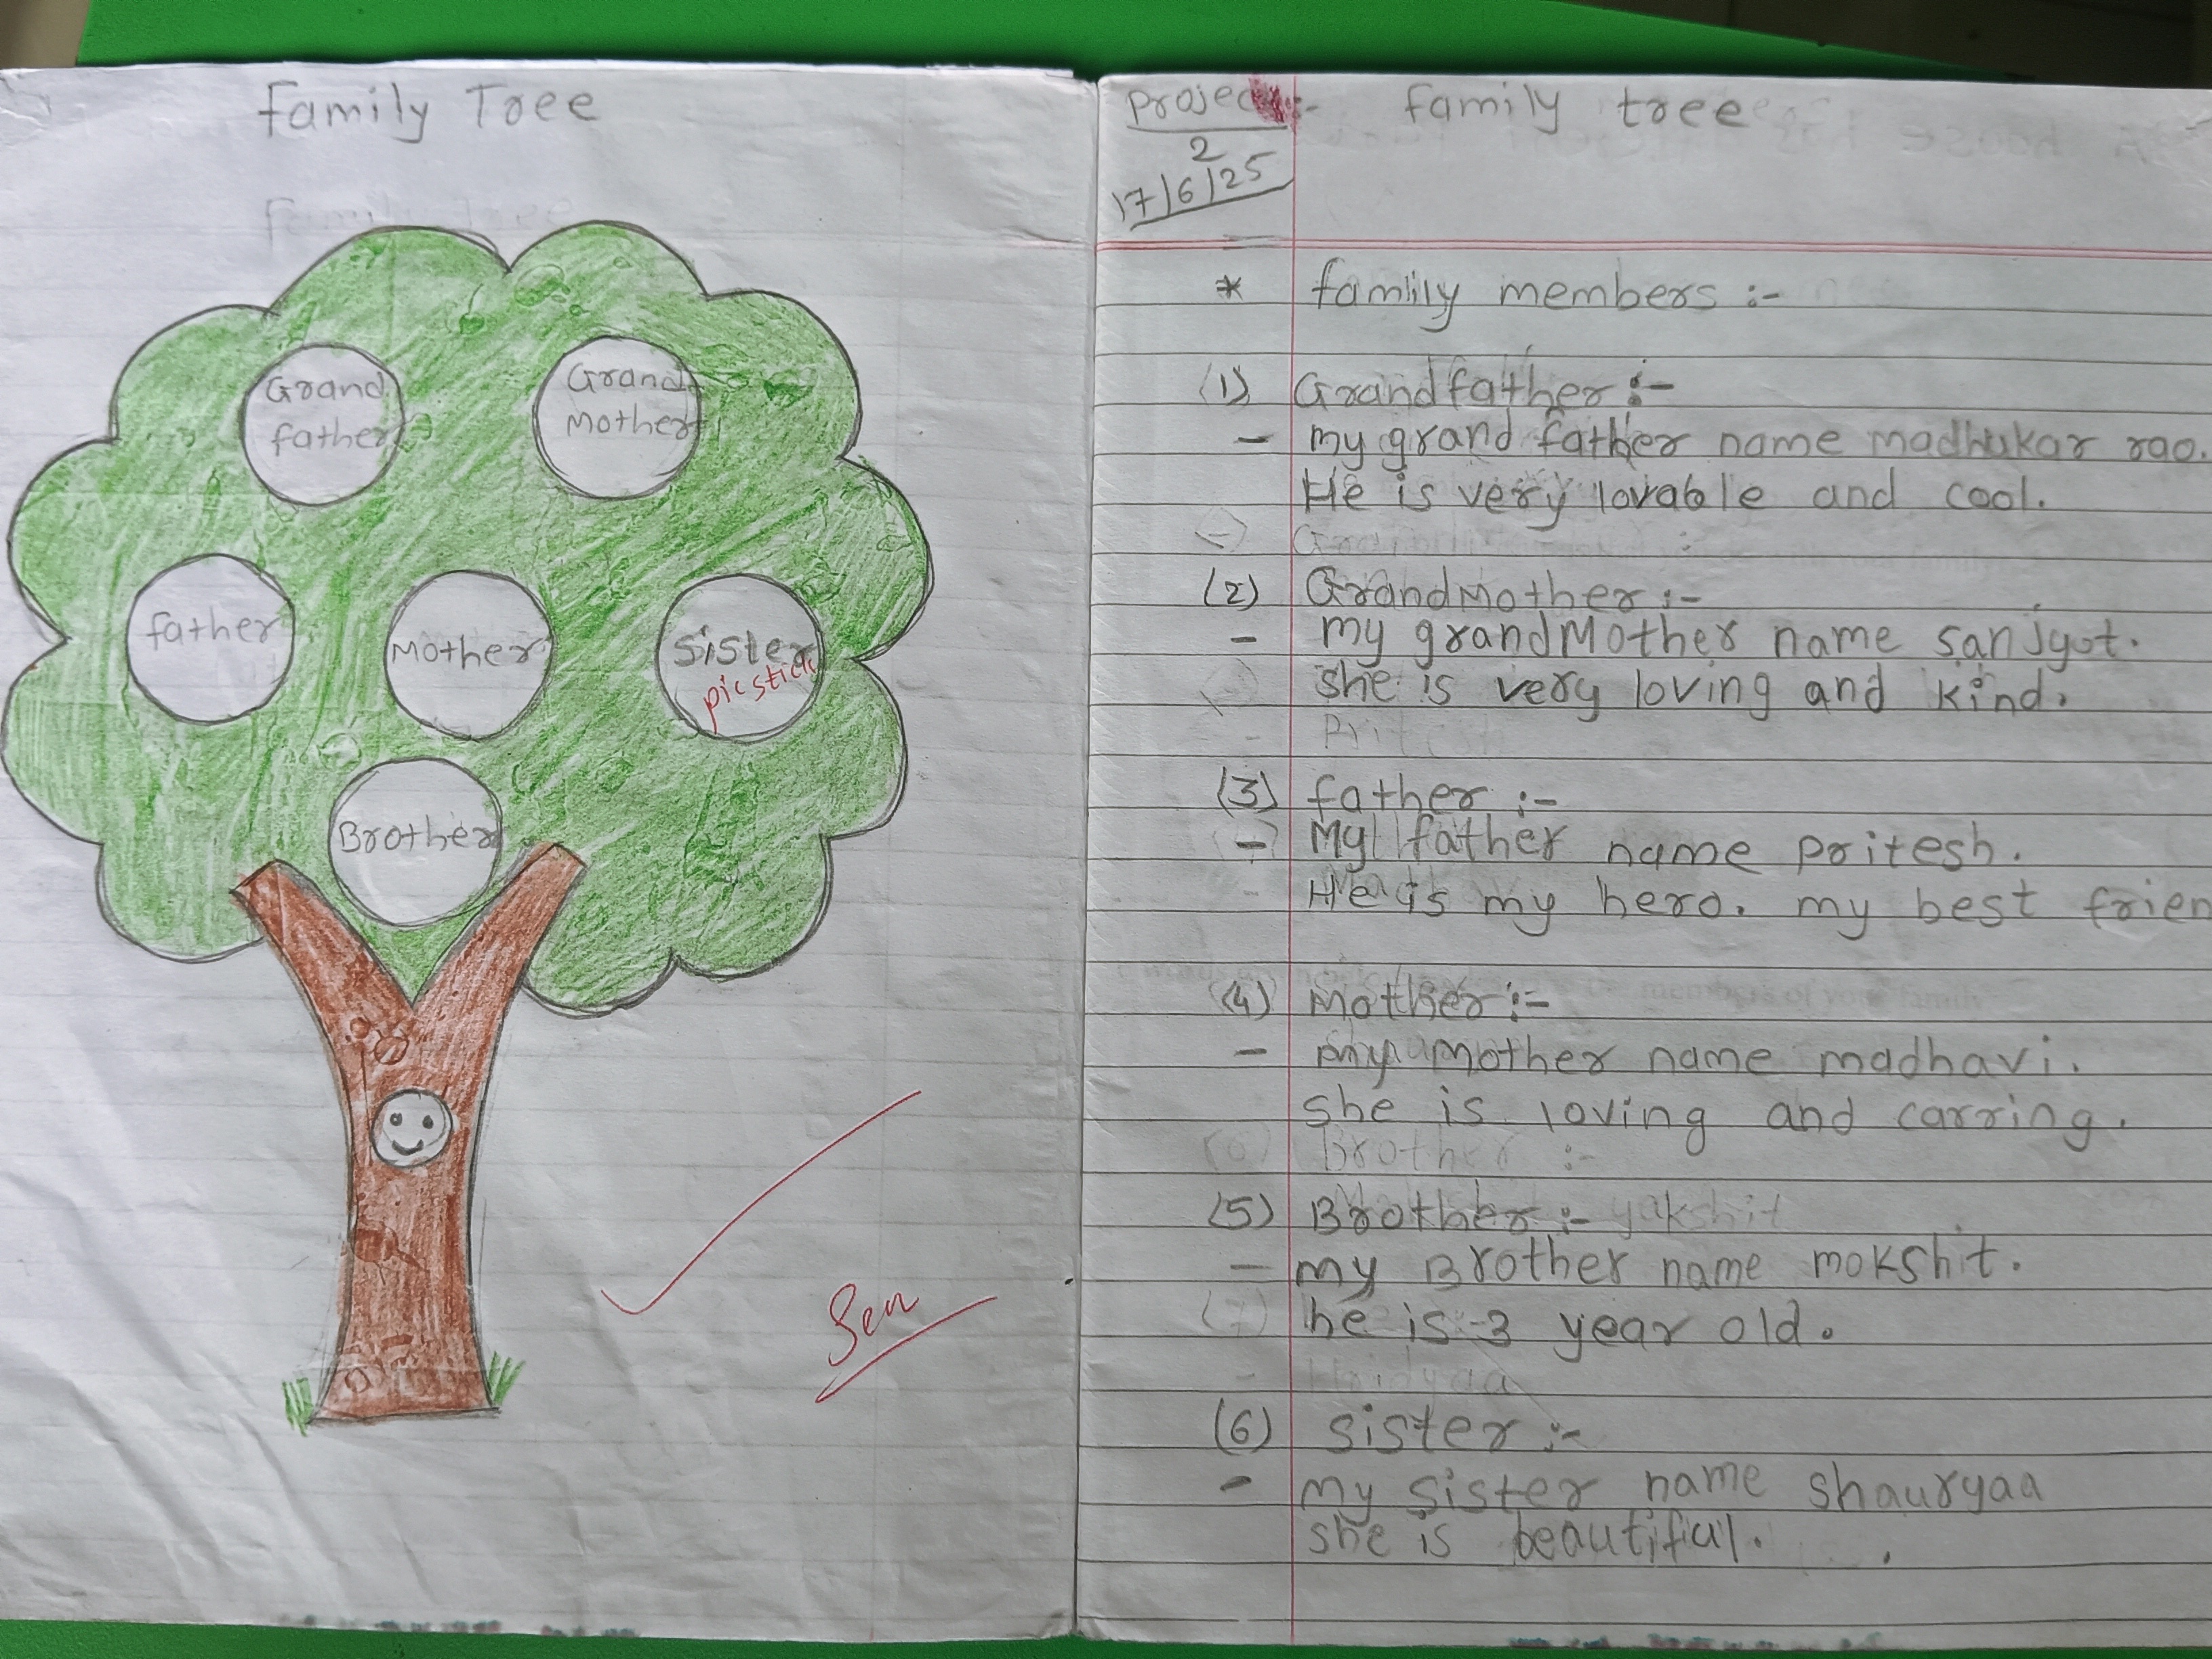 family Tree
Grand
father
Grand
Mother
father
Mother
Sister
pic stick
Brother
Project :- family tree
2
17/6/25
* family members :-
(1) Grandfather :-
- my grand father name madhukar rao.
He is very lovable and cool.
(2) GrandMother :-
- my grandMother name sanjyot.
she is very loving and kind.
(3) father :-
- My father name pritesh.
He is my hero. my best frien
(4) Mother :-
- my mother name madhavi.
she is loving and carring.
(5) Brother :- yakshit
- my Brother name mokshit.
he is 3 year old.
(6) sister :-
- my sister name shauryaa
she is beautiful.